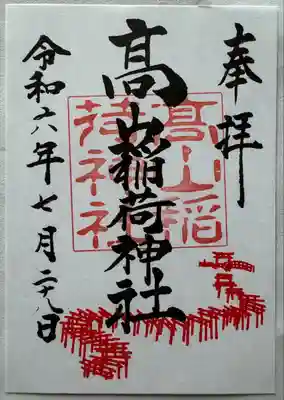 奉拝
髙山稲荷神社
髙山稲
荷神社
令和六年七月二十八日